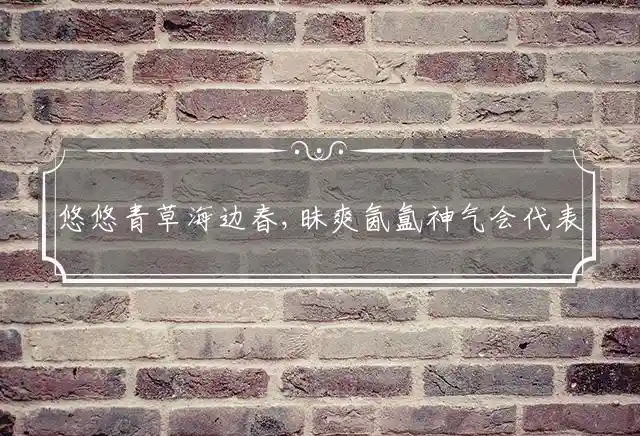 悠悠青草海边春,昧爽氤氲神气会代表